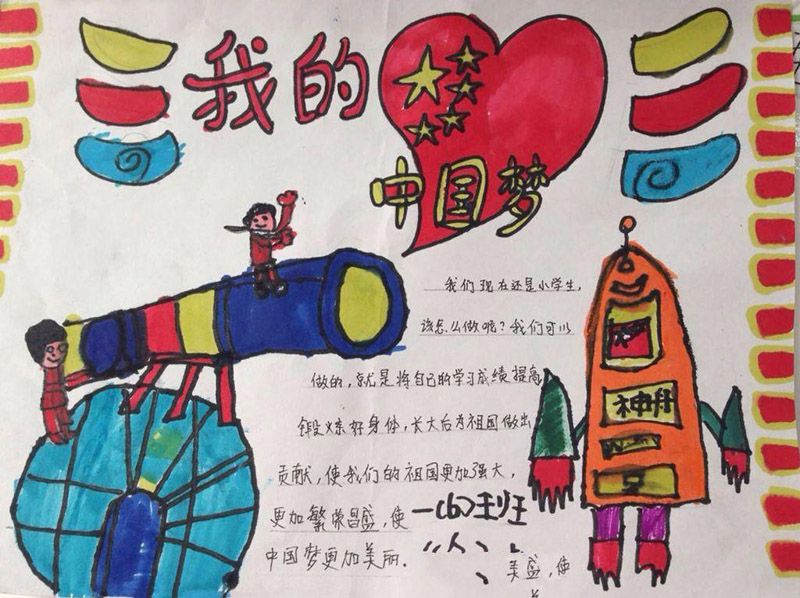 我的
中国梦
我们现在还是小学生,
该怎么做呢?我们可以
做的,就是将自己的学习成绩提高
锻炼好身体,长大后为祖国做出
贡献,使我们的祖国更加强大,
更加繁荣昌盛,使
中国梦更加美丽.
一(6)班
盛,使
神舟